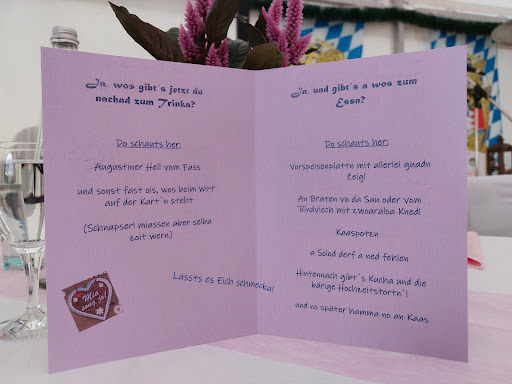 Ja, wos gibt´s jetzt do
nachad zum Trinka?
Do schauts her:
Augustiner Hell vom Fass
und sonst fast ois, wos beim Wirt
auf der Kart´n steht
(Schnapserl miassen aber selba
zoit wern)
Lassts es Eich schmecka!
Mia
sang ja!
Ja, und gibt´s a wos zum
Essn?
Do schauts her:
Vorspeisenplattn mit allerlei guadn
Zeigl
An Braten vo da Sau oder vom
Rindviech mit zwoaraloa Knedl
Kaaspotzn
a Solod derf a ned fehlen
Hintennach gibt´s Kucha und die
bärige Hochzeitstortn´!
und no später hamma no an Kaas